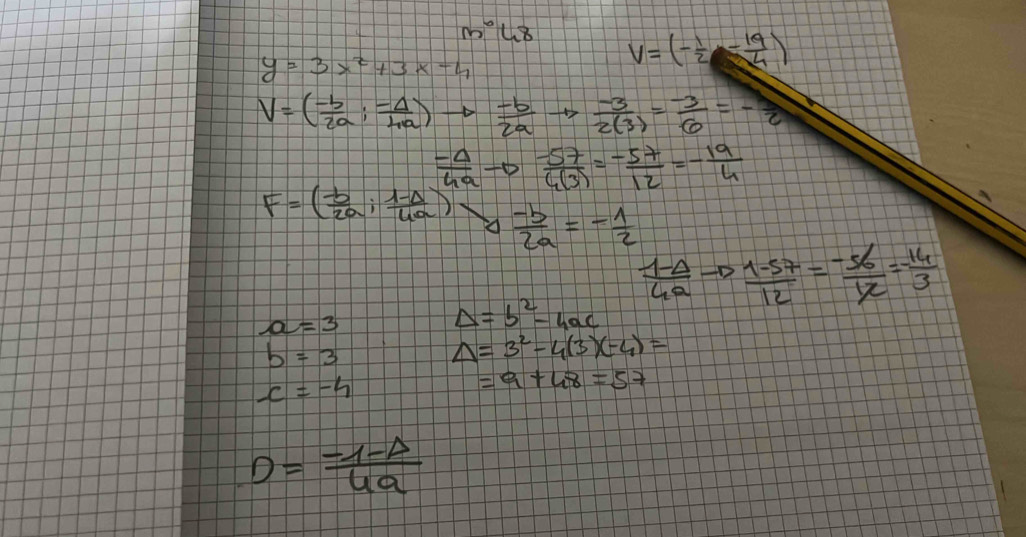 n° 48
V = (-1/2; -19/4)
y = 3x² + 3x - 4
V = (-b/2a; -Δ/4a) → -b/2a → -3/2(3) = -3/6 = -/2
-Δ/4a → -57/4(3) = -57/12 = -19/4
F = (-b/2a; 1-Δ/4a) ↘ -b/2a = -1/2
1-Δ/4a → 1-57/12 = -56/12 = -14/3
a = 3
b = 3
c = -4
Δ = b² - 4ac
Δ = 3² - 4(3)(-4) =
= 9 + 48 = 57
D = -1-Δ/4a